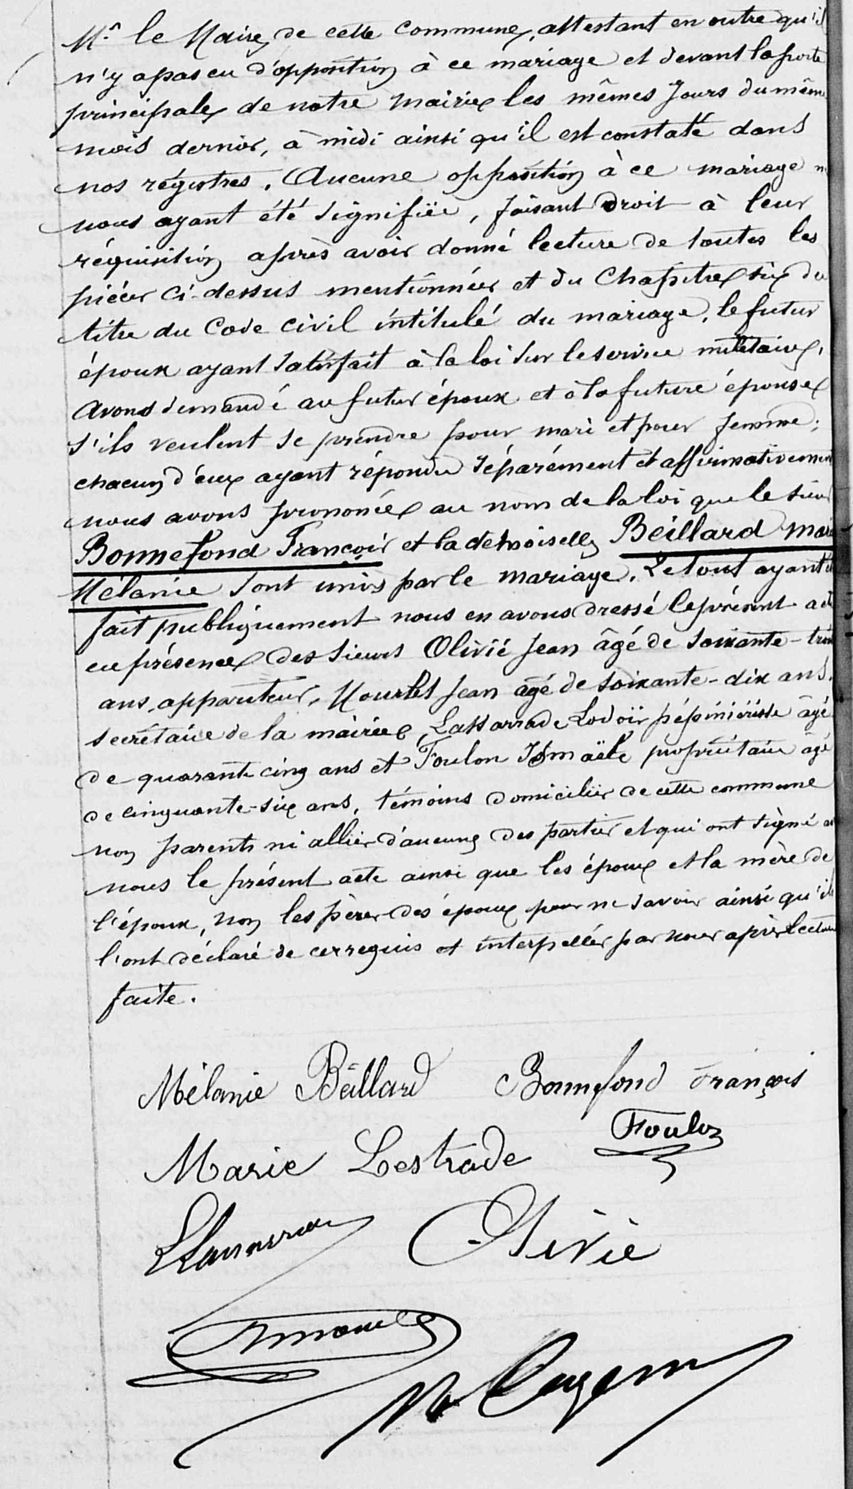 Mr le Maire, de cette commune, attestant en outre qu'il
n'y a pas eu d'opposition à ce mariage et devant la porte
principale de notre mairie les mêmes jours du même
mois dernier, à midi ainsi qu'il est constaté dans
nos régistres. Aucune opposition à ce mariage ne
nous ayant été signifiée, faisant droit à leur
réquisition après avoir donné lecture de toutes les
pièces ci-dessus mentionnées et du Chapitre six du
titre du Code civil intitulé du mariage, le futur
époux ayant satisfait à la loi sur le service militaire,
avons demandé au futur époux et à la future épouse
s'ils veulent se prendre pour mari et pour femme;
chacun d'eux ayant répondu séparément et affirmativement
nous avons prononcé au nom de la loi que le sieur
Bonnefond François et la demoiselle Beillard Marie
Mélanie sont unis par le mariage. Le tout ayant été
fait publiquement nous en avons dressé le présent acte
en présence des sieurs Olivié Jean âgé de soixante-trois
ans, appariteur, Jean âgé de soixante-dix ans,
secrétaire de la mairie, Lodoïs pépiniériste âgé
de quarante cinq ans et Foulon Ismaële propriétaire âgé
de cinquante-six ans, témoins domiciliés de cette commune
non parents ni alliés d'aucune des parties et qui ont signé avec
nous le présent acte ainsi que les époux et la mère de
l'époux, non les pères des époux pour ne savoir ainsi qu'ils
l'ont déclaré de ce requis et interpellés par nous après lecture
faite.
Mélanie Béillard Bonnefond François
Marie Lestrade Foulon
Olivié